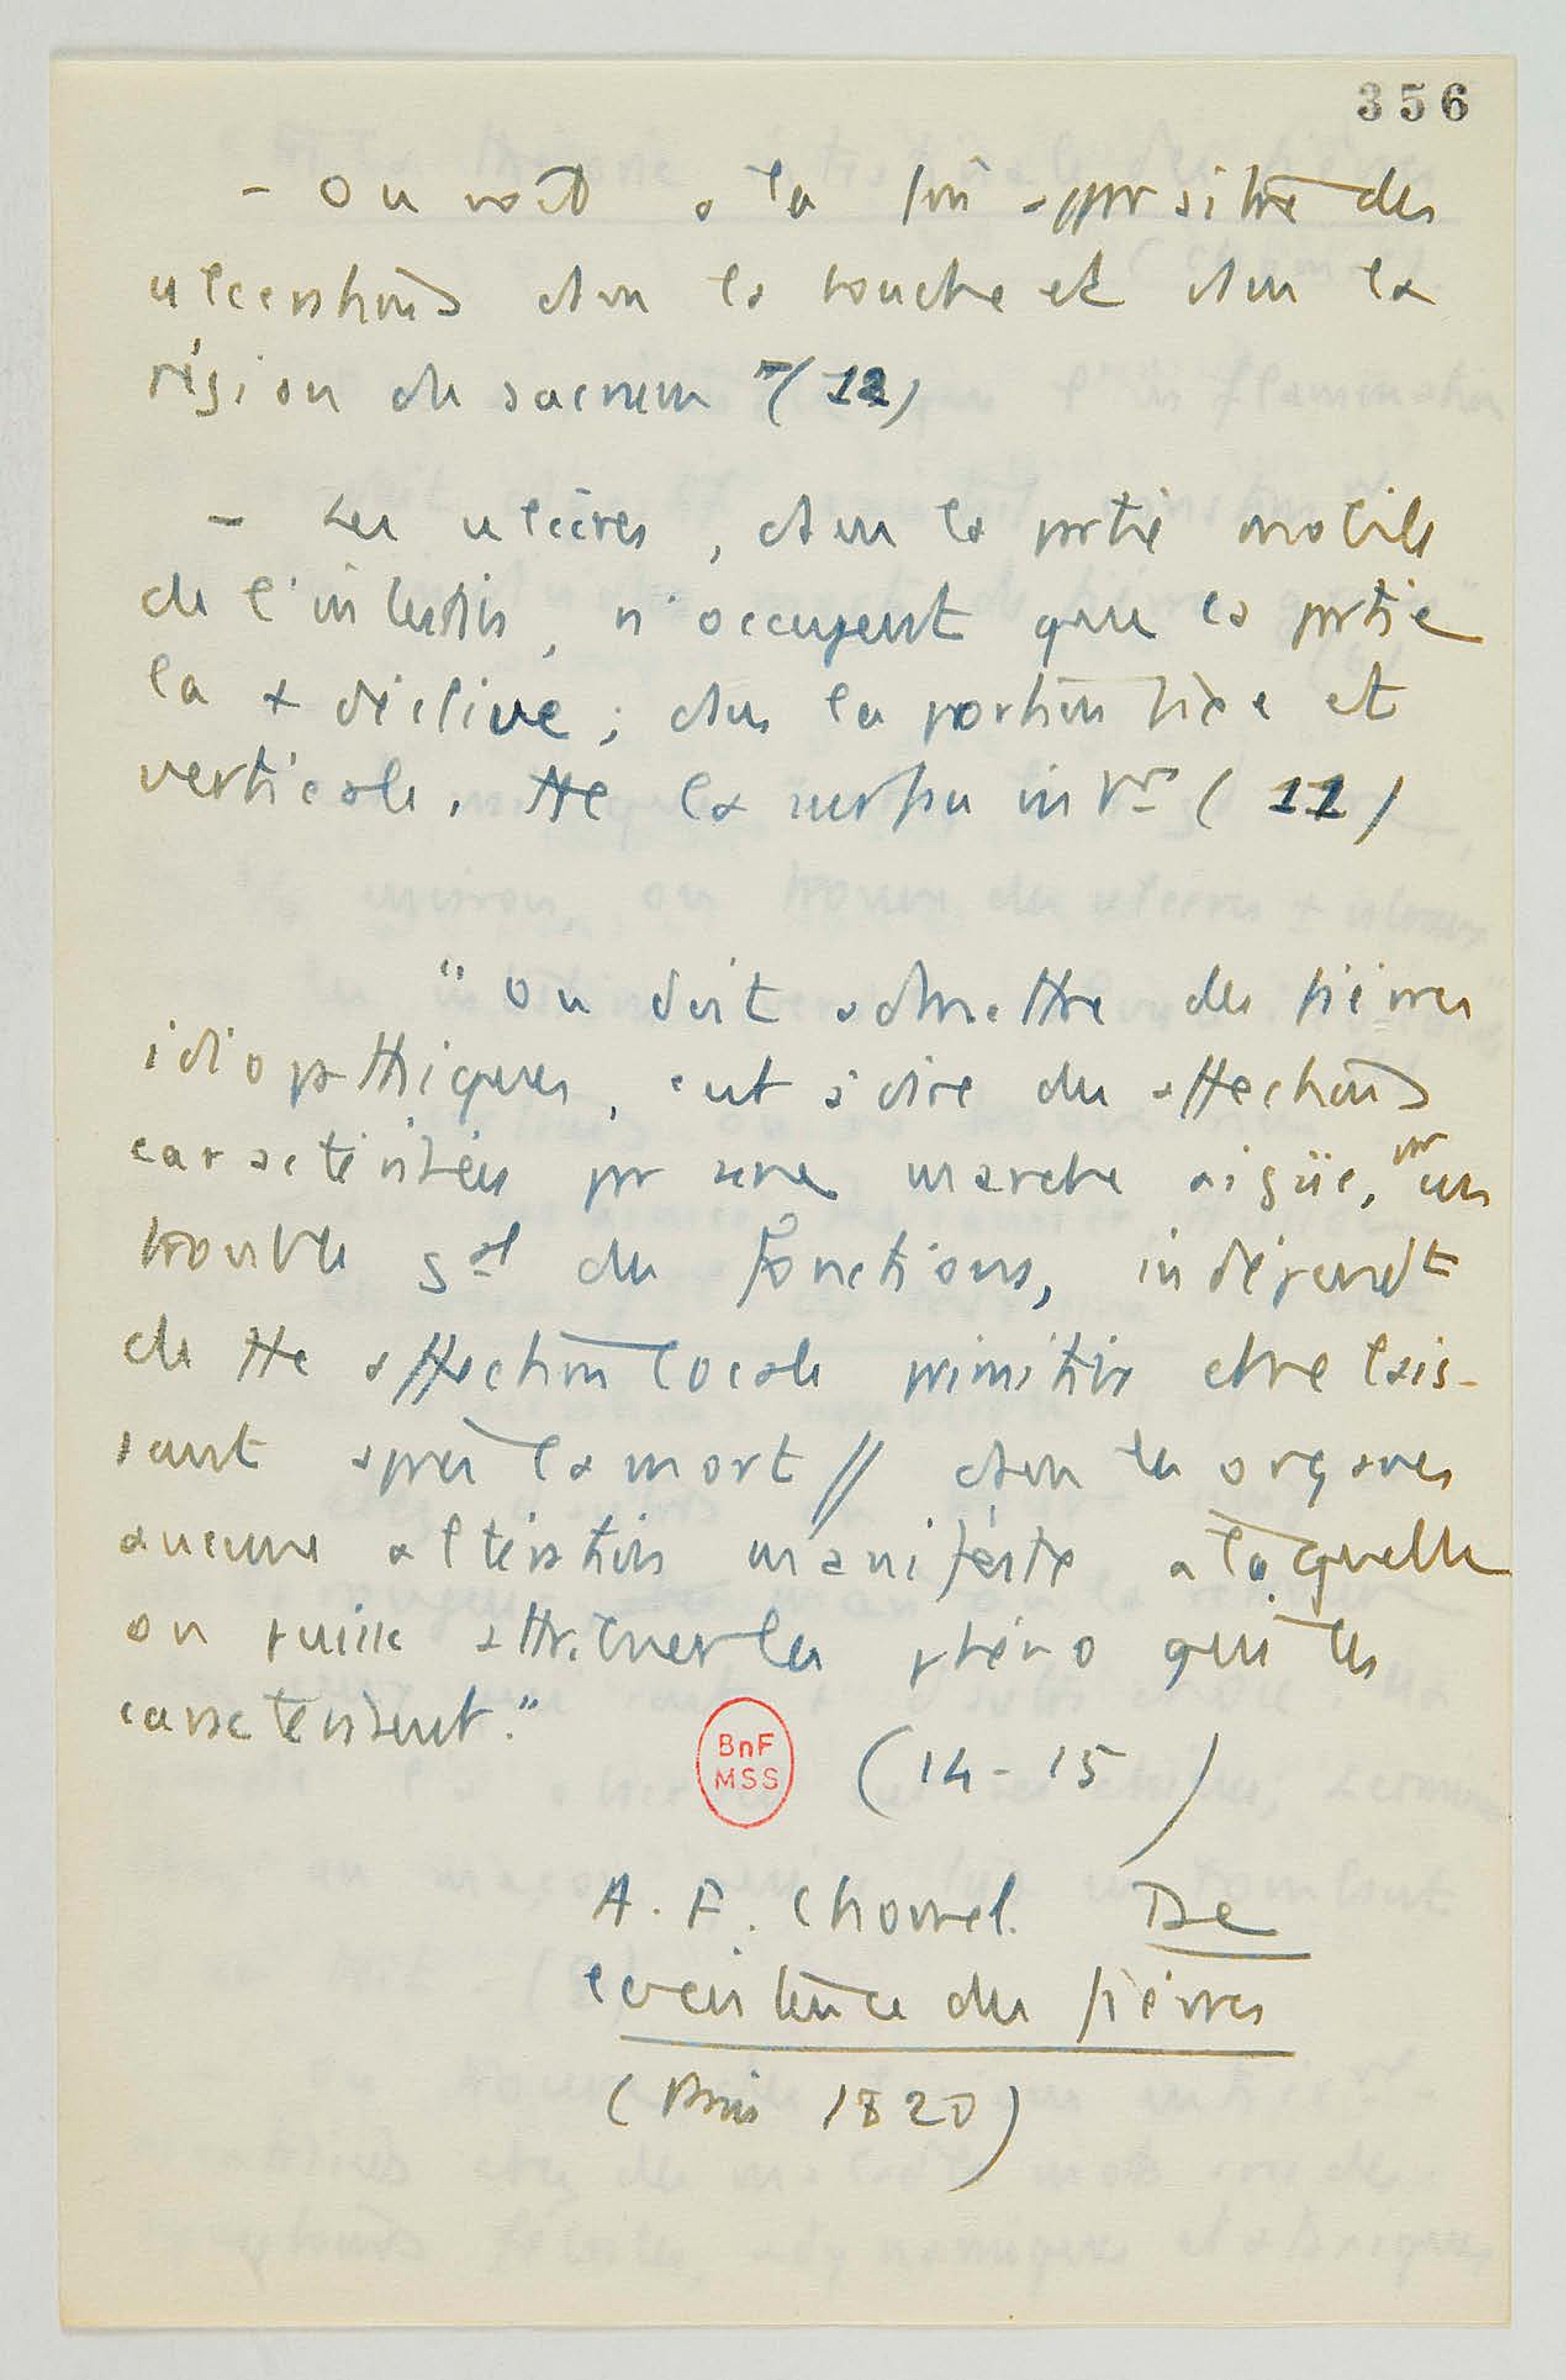 356
- On voit à la fin apparaître des
ulcérations dans la bouche et dans la
région du sacrum (12)
- Les ulcères, dans la partie mobile
de l'intestin, n'occupent que la partie
la + déclive ; dans la portion fixe et
verticale, tte la surface intre (11)
"On doit admettre des fièvres
idiopathiques, c'est à dire des affections
caractérisées par une marche aigüe, par un
trouble gal des fonctions, indépendt
de tte affection locale primitive et ne lais-
sant après la mort // dans les organes
aucune altération manifeste à laquelle
on puisse attribuer les phéno qui les
caractérisent."
BnF
MSS
(14-15)
A. F. Chomel. De
l'existence des fièvres
(Paris 1820)